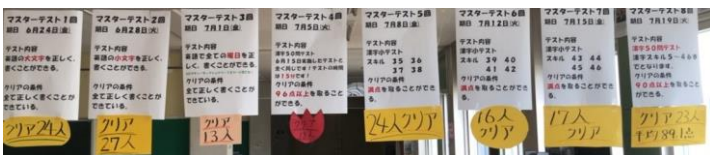 マスターテスト1回
6月24日(金)
テスト内容
英語の大文字を正しく、
書くことができる。
クリアの条件
全て正しく書くことが
できている。
クリア24人
マスターテスト2回
6月28日(火)
テスト内容
英語の小文字を正しく、
書くことができる。
クリアの条件
全て正しく書くことが
できている。
クリア
27人
マスターテスト3回
7月1日(金)
テスト内容
英語で全ての曜日を正
しく、書くことができる。
クリアの条件
全て正しく書くことが
できている。
クリア
13人
マスターテスト4回
7月5日(火)
テスト内容
漢字50問テスト
6月15日実施したテストと
全く同じです!テストの時間
は15分です!
クリアの条件
96点以上を取ることが
できる。
マスターテスト5回
7月8日(金)
テスト内容
漢字小テスト
スキル 35 36
37 38
クリアの条件
満点を取ることができ
る。
24人クリア
マスターテスト6回
7月12日(火)
テスト内容
漢字小テスト
スキル 39 40
41 42
クリアの条件
満点を取ることができ
る。
16人
クリア
マスターテスト7回
7月15日(金)
テスト内容
漢字小テスト
スキル 43 44
45 46
クリアの条件
満点を取ることができ
る。
17人
クリア
マスターテスト8回
7月19日(火)
テスト内容
漢字50問テスト
漢字スキル5~46ま
でとなります。
クリアの条件
90点以上を取ることが
できる。
クリア23人
平均89.1点